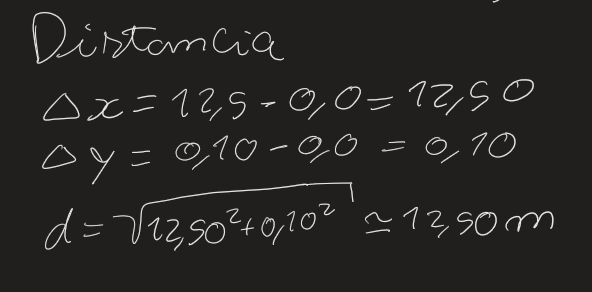 Distancia
Δx = 12,5 - 0,0 = 12,50
Δy = 0,10 - 0,0 = 0,10
d = √12,50²+0,10² ≃ 12,50 m